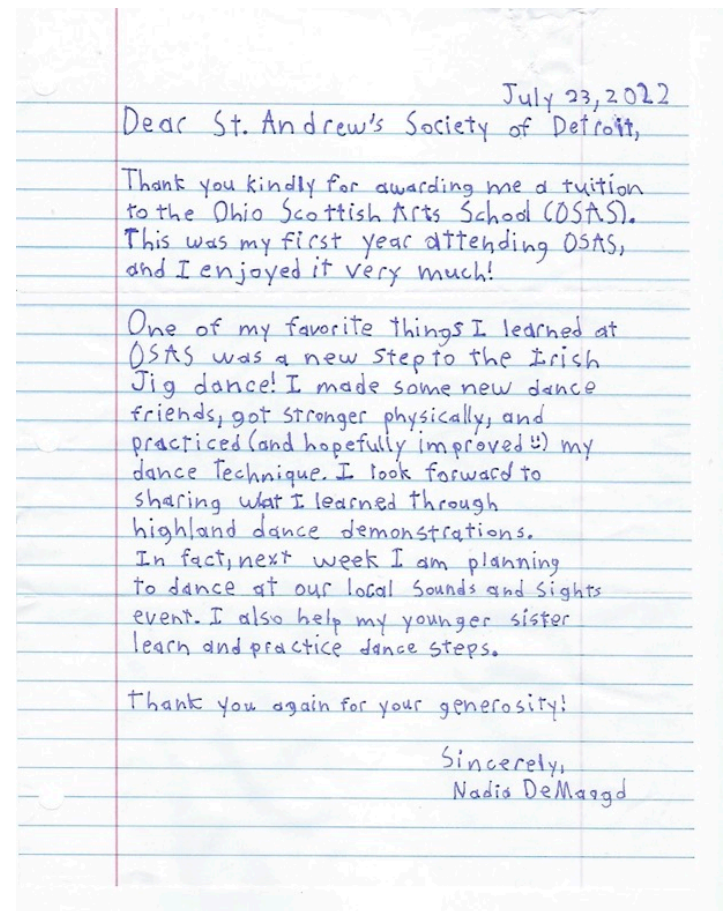 July 23, 2022
Dear St. Andrew's Society of Detroit,
Thank you kindly for awarding me a tuition
to the Ohio Scottish Arts School (OSAS).
This was my first year attending OSAS,
and I enjoyed it very much!
One of my favorite things I learned at
OSAS was a new step to the Irish
Jig dance! I made some new dance
friends, got stronger physically, and
practiced (and hopefully improved ü) my
dance technique. I look forward to
sharing wat I learned through
highland dance demonstrations.
In fact, next week I am planning
to dance at our local Sounds and Sights
event. I also help my younger sister
learn and practice dance steps.
Thank you again for your generosity!
Sincerely,
Nadia DeMaagd